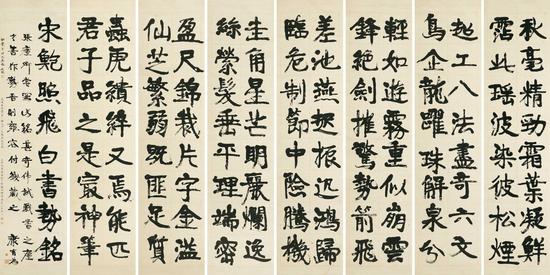 秋毫精勁霜葉凝鮮
霑此瑶波染彼松煙
超工八法盡奇六文
鳥企龍躍珠解泉分
輕如遊霧重似崩雲
鋒絕劍摧驚勢箭飛
差池燕起振迅鴻歸
臨危制節中險騰機
圭角星芒明麗爛逸
絲縈髮垂平理端密
盈尺錦裁片字金溢
仙芝繁弱既匪足質
蟲虎績緯又焉能匹
君子品之是冣神筆
宋鮑照飛白書勢銘
康有為